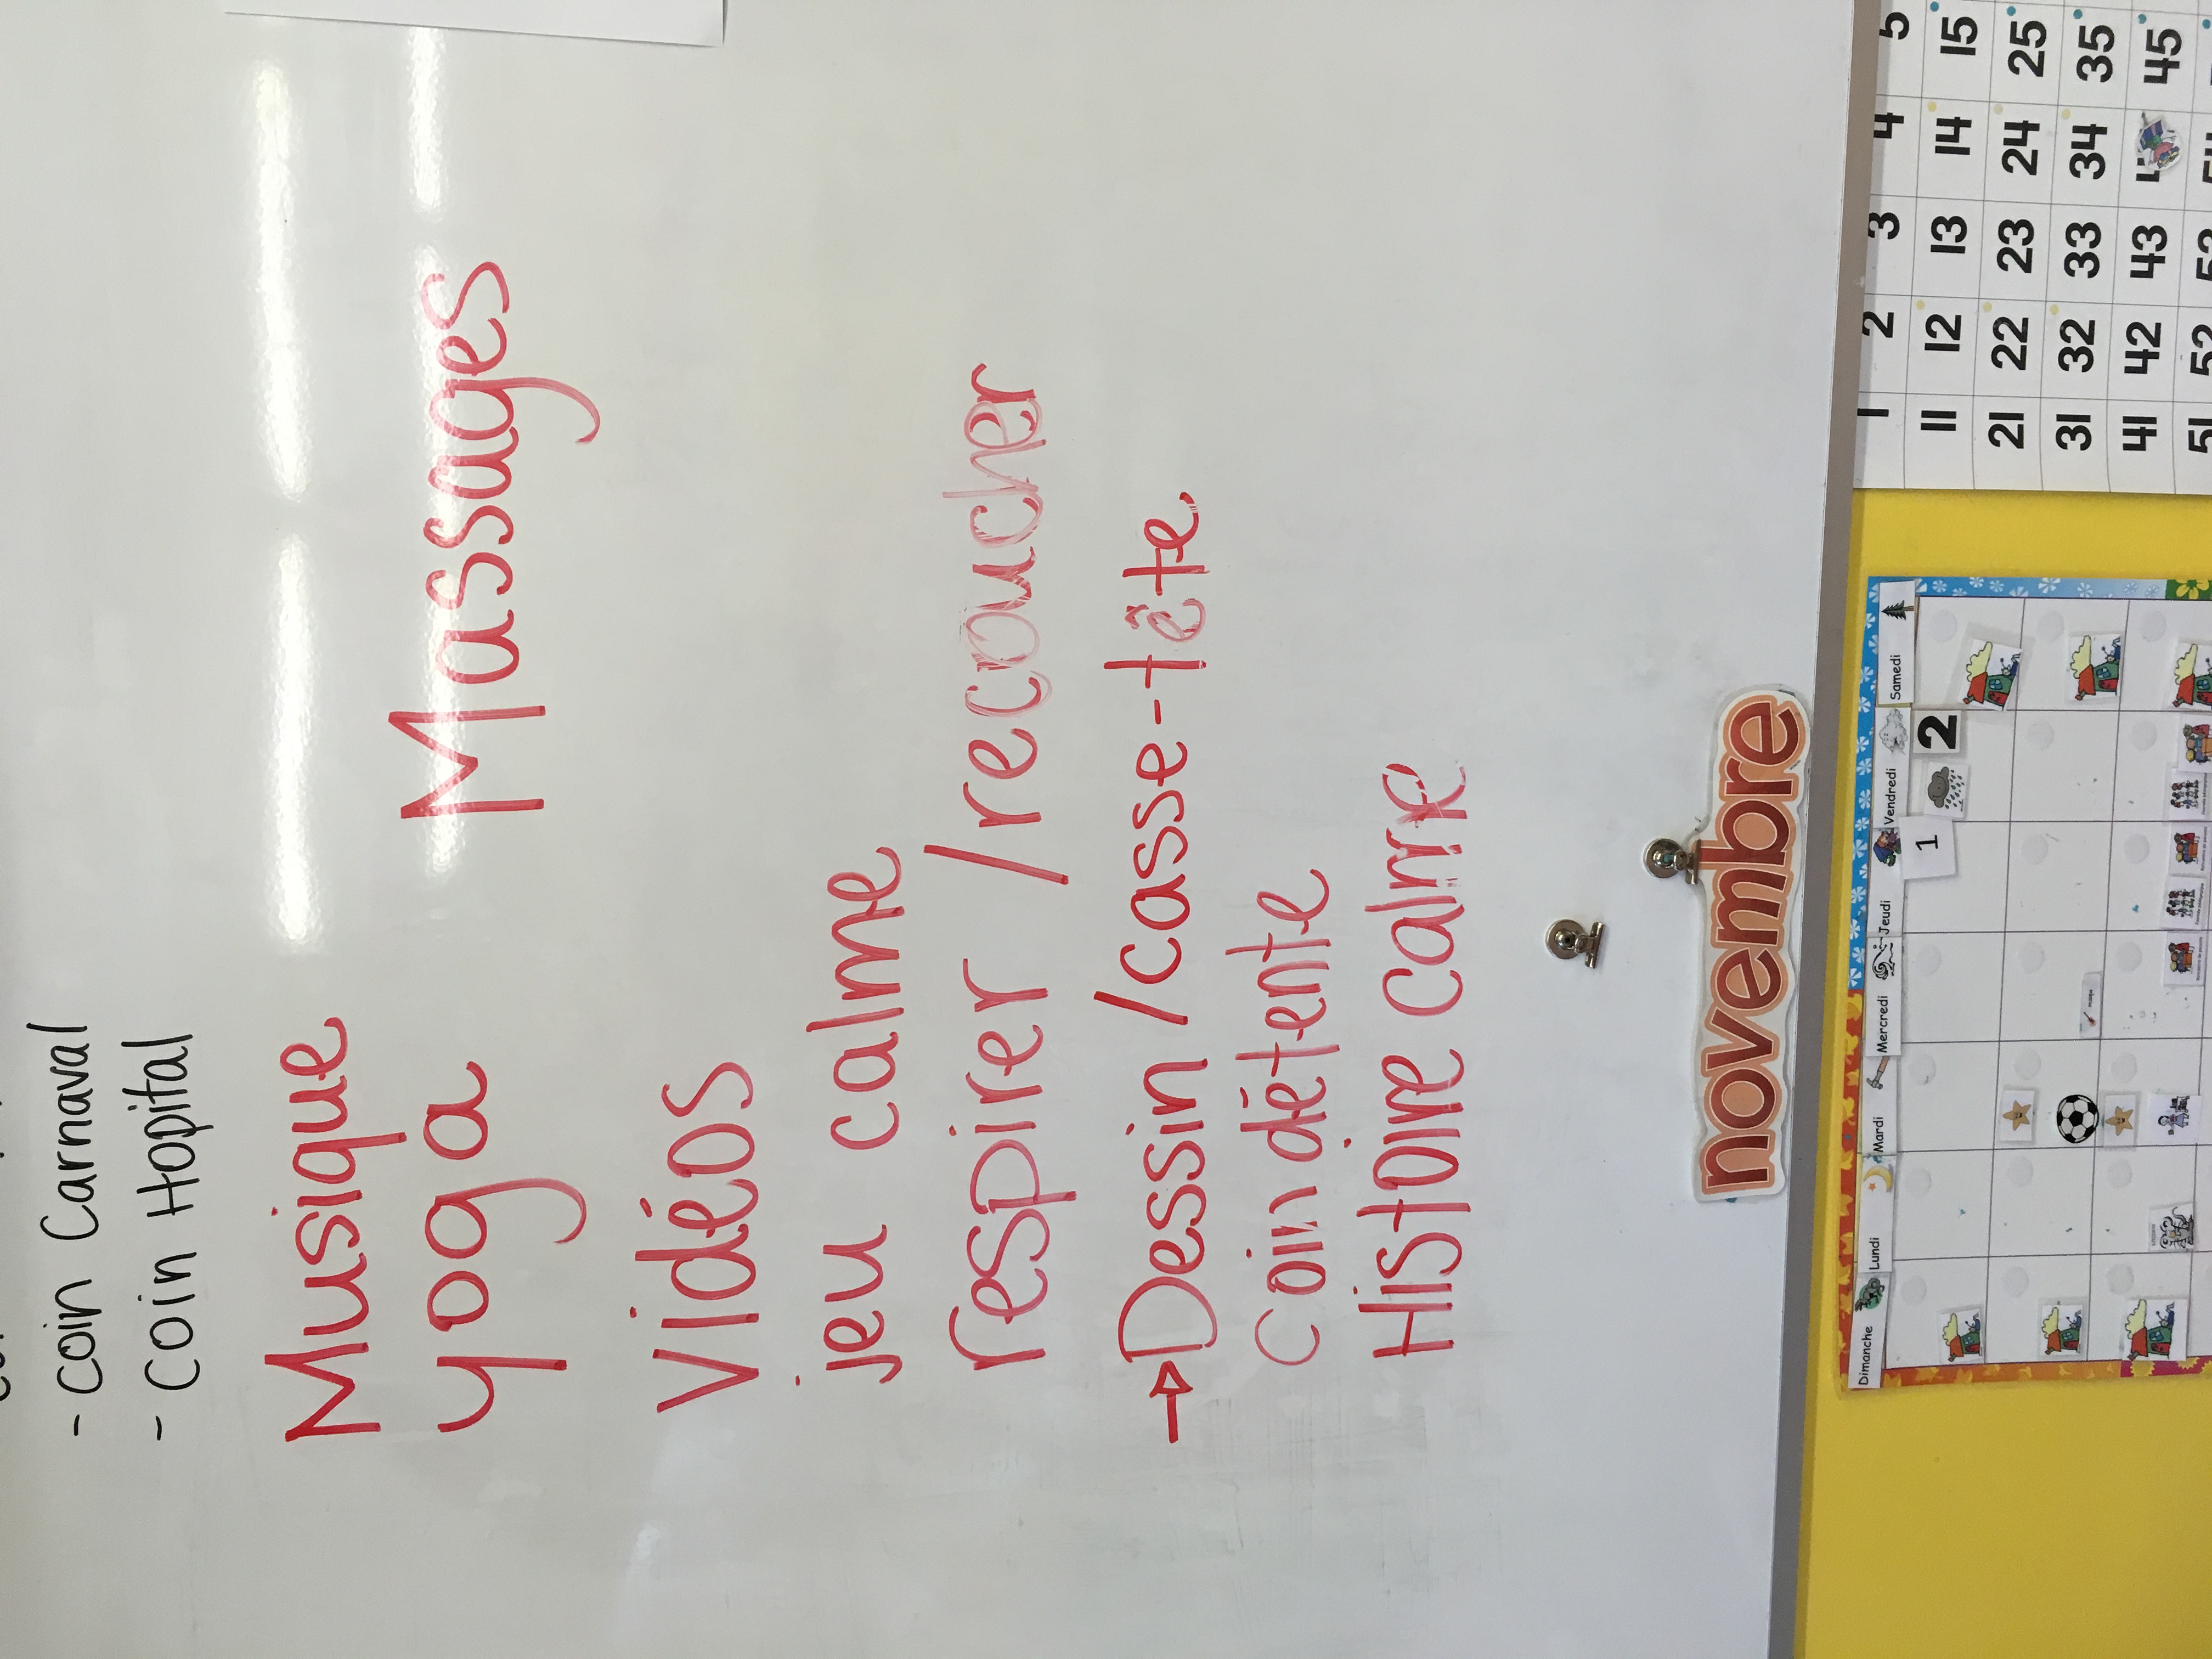 - coin Carnaval
- coin Hopital
Musique
yoga Massages
Vidéos
jeu calme
respirer /recoucher
→Dessin /casse-tête
Coin détente
Histoire calme
novembre
Dimanche Lundi Mardi Mercredi Jeudi Vendredi Samedi
1 2
1 2 3 4 5
11 12 13 14 15
21 22 23 24 25
31 32 33 34 35
41 42 43 45
51 52 53